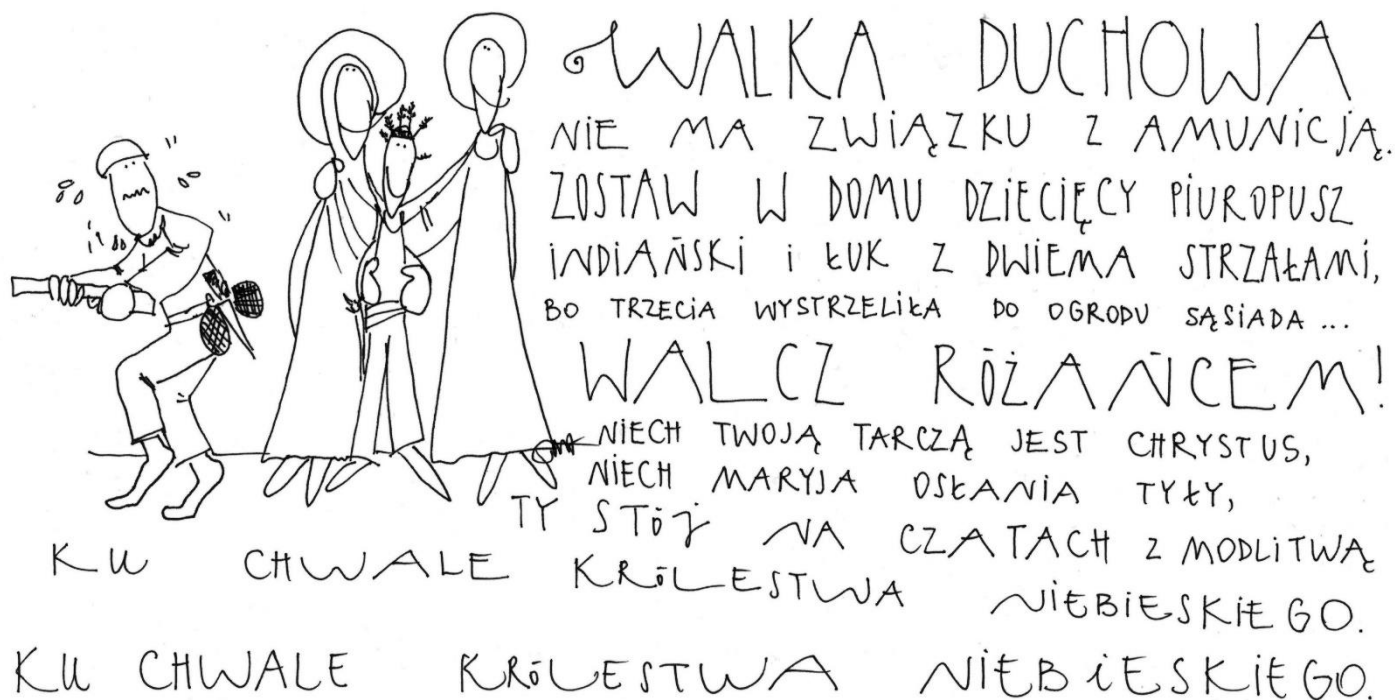 WALKA DUCHOWA
NIE MA ZWIĄZKU Z AMUNICJĄ.
ZOSTAW W DOMU DZIECIĘCY PIUROPUSZ
INDIAŃSKI I ŁUK Z DWIEMA STRZAŁAMI,
BO TRZECIA WYSTRZELIŁA DO OGRODU SĄSIADA...
WALCZ RÓŻAŃCEM!
NIECH TWOJĄ TARCZĄ JEST CHRYSTUS,
NIECH MARYJA OSŁANIA TYŁY,
TY STÓJ NA CZATACH Z MODLITWĄ
KU CHWALE KRÓLESTWA NIEBIESKIEGO.
KU CHWALE KRÓLESTWA NIEBIESKIEGO.